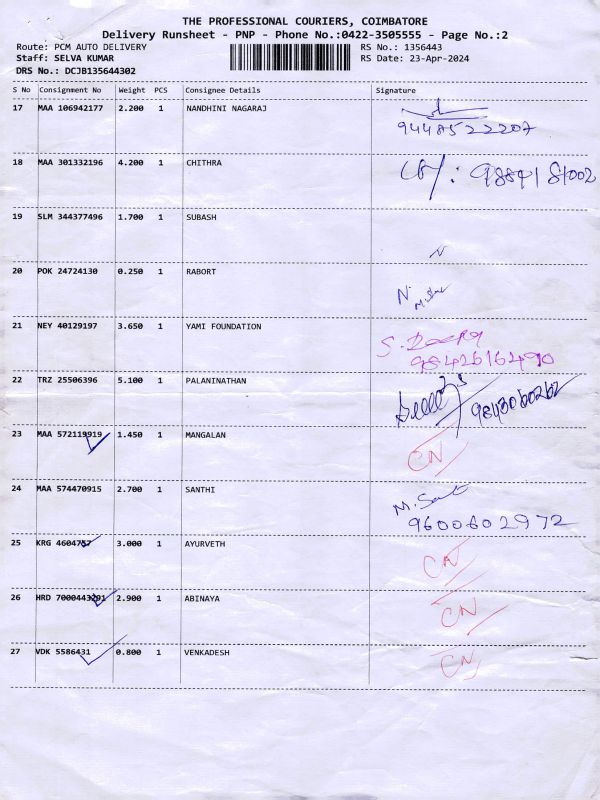 THE PROFESSIONAL COURIERS, COIMBATORE
Delivery Runsheet - PNP - Phone No.:0422-3505555 - Page No.:2
Route: PCM AUTO DELIVERY RS No.: 1356443
Staff: SELVA KUMAR RS Date: 23-Apr-2024
DRS No.: DCJB135644302
S No Consignment No Weight PCS Consignee Details Signature
17 MAA 106942177 2.200 1 NANDHINI NAGARAJ
9448522207
18 MAA 301332196 4.200 1 CHITHRA
19 SLM 344377496 1.700 1 SUBASH
N
20 POK 24724130 0.250 1 RABORT N
21 NEY 40129197 3.650 1 YAMI FOUNDATION
9842616490
22 TRZ 25506396 5.100 1 PALANINATHAN
23 MAA 572119919 1.450 1 MANGALAN
CN
24 MAA 574470915 2.700 1 SANTHI
9600602972
25 KRG 4604757 3.000 1 AYURVETH
CN
26 HRD 7000443291 2.900 1 ABINAYA CN
27 VDK 5586431 0.800 1 VENKADESH CN